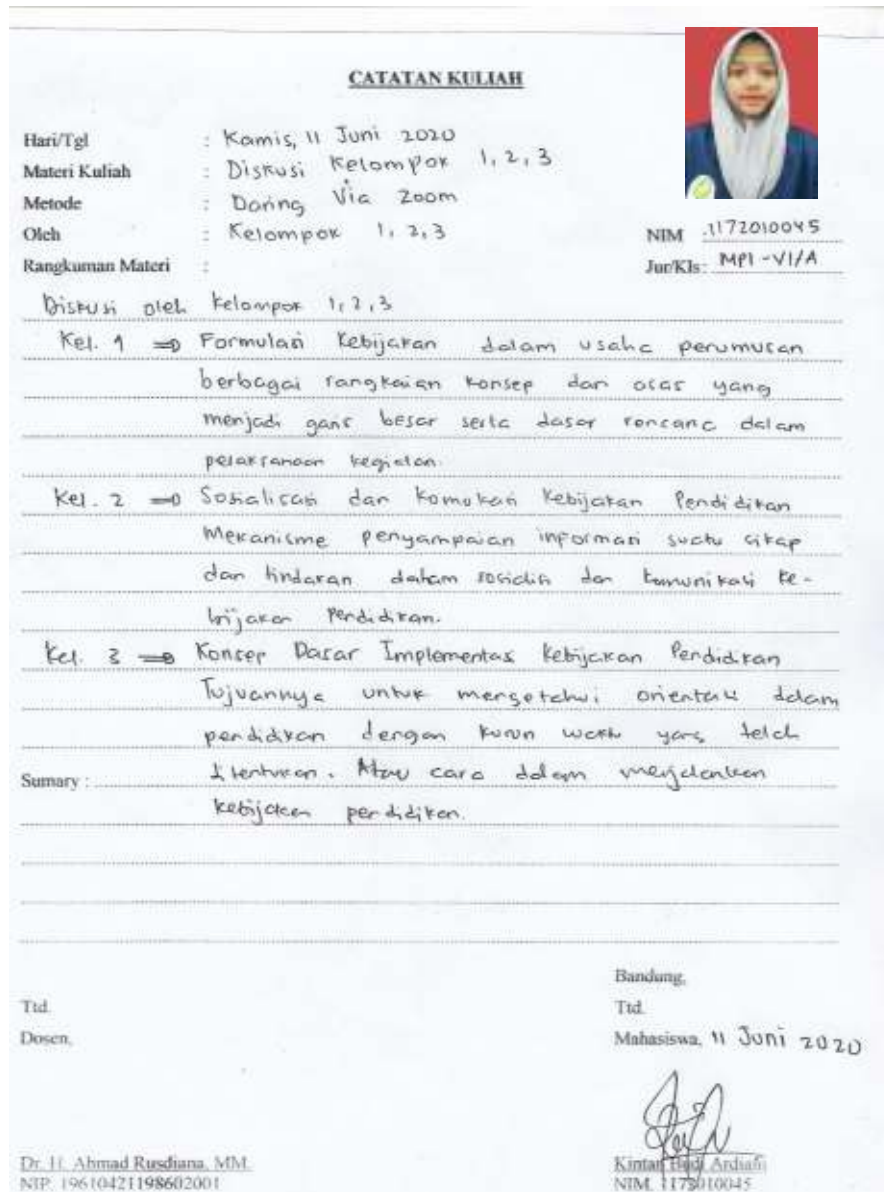 CATATAN KULIAH
Hari/Tgl : Kamis, 11 Juni 2020
Materi Kuliah : Diskusi Kelompok 1, 2, 3
Metode : Daring Via Zoom
Oleh : Kelompok 1, 2, 3
NIM .1172010045
Rangkuman Materi :
Jur/Kls : MPI - VI/A
Diskusi oleh Kelompok 1, 2, 3
Kel. 1 ⇒ Formulasi Kebijakan dalam usaha perumusan
berbagai rangkaian konsep dan asas yang
menjadi garis besar serta dasar rencana dalam
pelaksanaan kegiatan.
Kel. 2 ⇒ Sosialisasi dan Komukasi Kebijakan Pendidikan
Mekanisme penyampaian informasi suatu sikap
dan tindakan dalam dan komunikasi ke-
bijakan Pendidikan.
Kel. 3 ⇒ Konsep Dasar Implementas Kebijakan Pendidikan
Tujuannya untuk mengetahui orientasi dalam
pendidikan dengan kurun waktu yang telah
Sumary : ditentukan. Atau cara dalam menjalankan
kebijakan pendidikan.
Bandung,
Ttd.
Ttd.
Dosen,
Mahasiswa, 11 Juni 2020
Dr. H. Ahmad Rusdiana, MM.
Kintan Ardiani
NIP. 19610421198602001
NIM. 1172010045